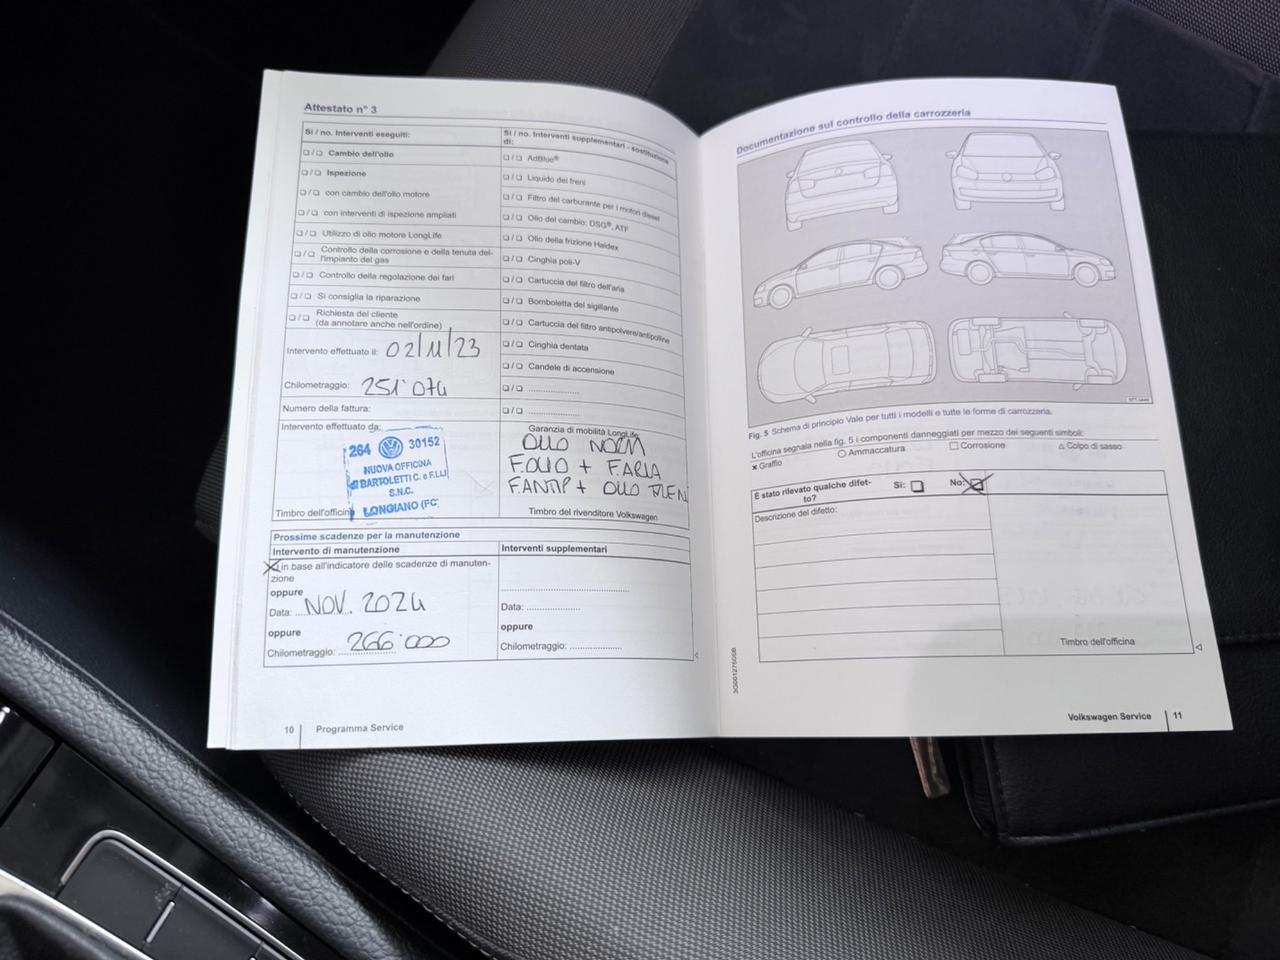 Attestato n° 3
Sì / no. Interventi eseguiti:
❑ / ❑ Cambio dell'olio
❑ / ❑ Ispezione
❑ / ❑ con cambio dell'olio motore
❑ / ❑ con interventi di ispezione ampliati
❑ / ❑ Utilizzo di olio motore LongLife
❑ / ❑ Controllo della corrosione e della tenuta del-
l'impianto del gas
❑ / ❑ Controllo della regolazione dei fari
❑ / ❑ Si consiglia la riparazione
❑ / ❑ Richiesta del cliente
(da annotare anche nell'ordine)
Intervento effettuato il: 02/11/23
Chilometraggio: 251'074
Numero della fattura:
Intervento effettuato da:
264 30152
NUOVA OFFICINA
BARTOLETTI C. e F.LLI
S.N.C.
LONGIANO (FC)
Timbro dell'officina
Sì / no. Interventi supplementari - sostituzione
di:
❑ / ❑ AdBlue®
❑ / ❑ Liquido dei freni
❑ / ❑ Filtro del carburante per i motori diesel
❑ / ❑ Olio del cambio: DSG®, ATF
❑ / ❑ Olio della frizione Haldex
❑ / ❑ Cinghia poli-V
❑ / ❑ Cartuccia del filtro dell'aria
❑ / ❑ Bomboletta del sigillante
❑ / ❑ Cartuccia del filtro antipolvere/antipolline
❑ / ❑ Cinghia dentata
❑ / ❑ Candele di accensione
❑ / ❑ ....................
❑ / ❑ ....................
Garanzia di mobilità LongLife
OLIO NORM
F.OLIO + F.ARIA
F.ANTIP + OLIO FREN
Timbro del rivenditore Volkswagen
Prossime scadenze per la manutenzione
Intervento di manutenzione
in base all'indicatore delle scadenze di manuten-
zione
oppure
Data: NOV. 2024
oppure
Chilometraggio: 266'000
Interventi supplementari
Data: ....................
oppure
Chilometraggio: ....................
10 Programma Service
Documentazione sul controllo della carrozzeria
Fig. 5 Schema di principio Vale per tutti i modelli e tutte le forme di carrozzeria.
L'officina segnala nella fig. 5 i componenti danneggiati per mezzo dei seguenti simboli:
x Graffio ○ Ammaccatura □ Corrosione △ Colpo di sasso
È stato rilevato qualche difet-
to? Sì: ❑ No: ❑
Descrizione del difetto:
Timbro dell'officina
Volkswagen Service 11